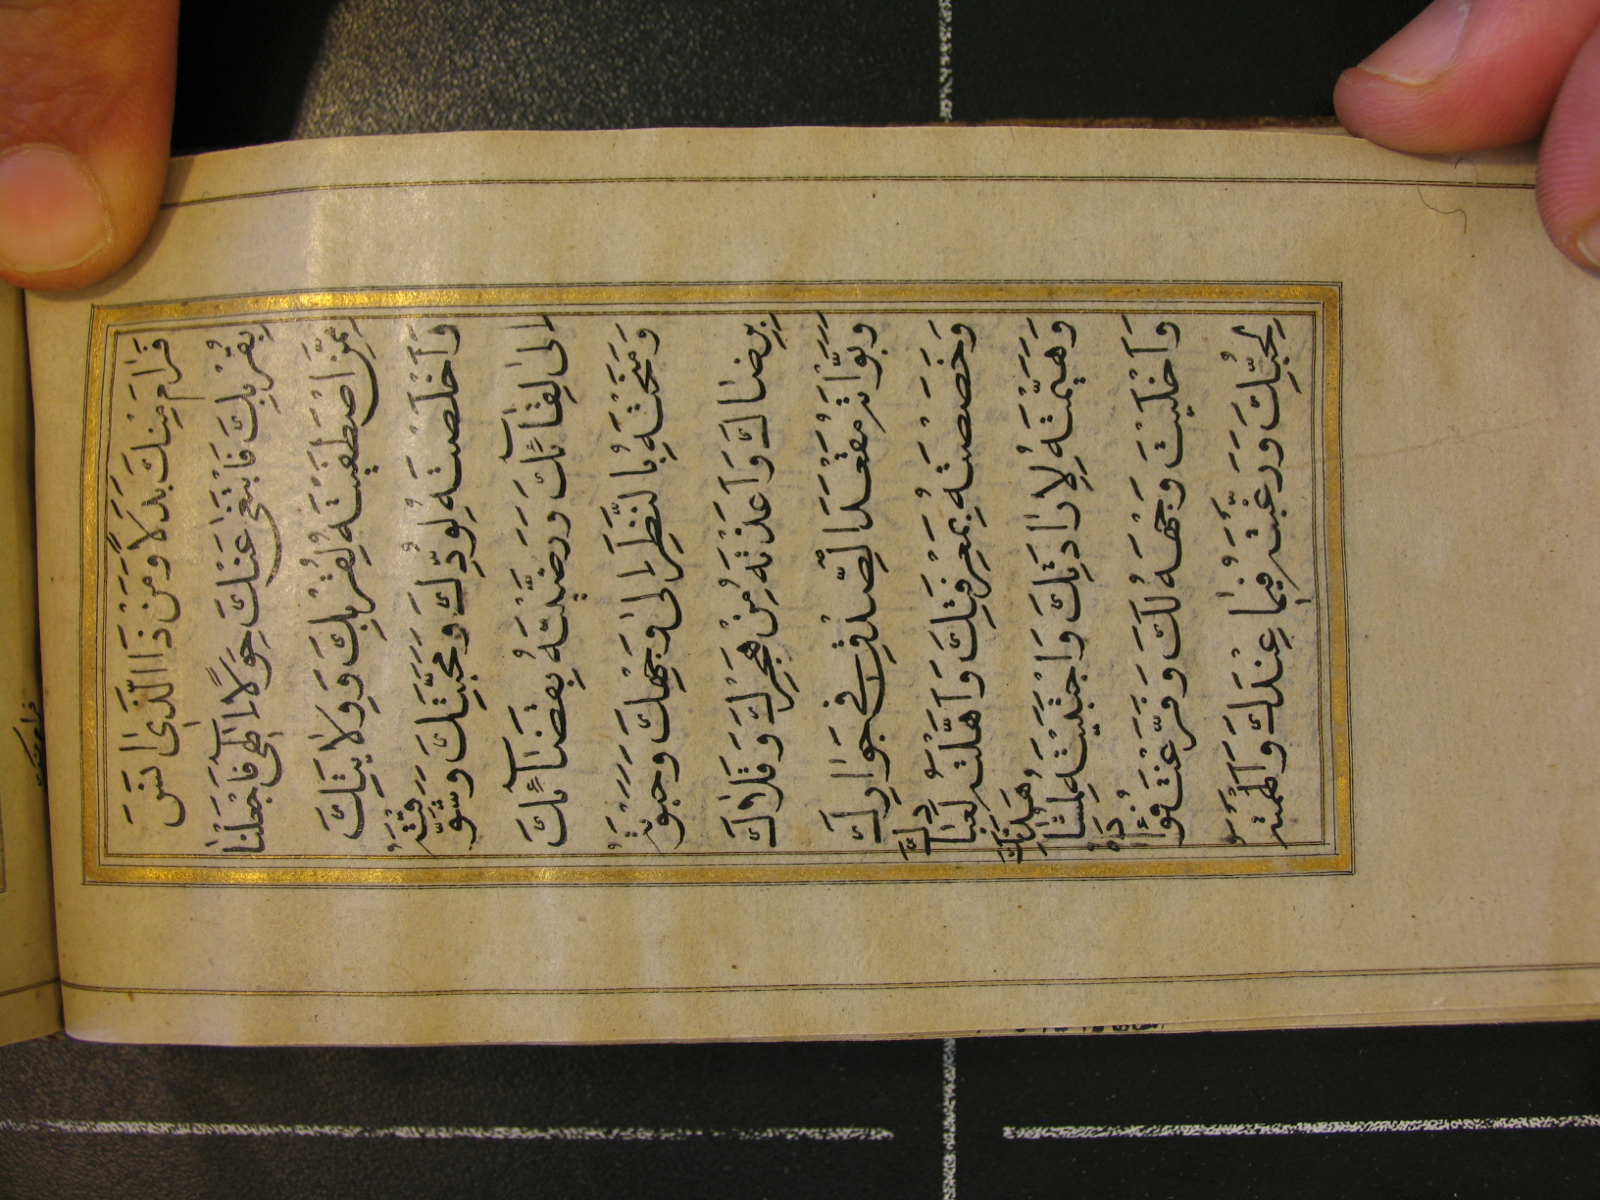 فرام منك
فَرَامَ مِنْكَ بَدَلًا وَمَنْ ذَا الَّذِي اَنِسَ
بِقُرْبِكَ فَابْتَغٰى عَنْكَ حِوَلًا اِلٰهِي فَاجْعَلْنَا
مِمَّنِ اصْطَفَيْتَهُ لِقُرْبِكَ وَوِلَايَتِكَ
وَاَخْلَصْتَهُ لِوُدِّكَ وَمَحَبَّتِكَ وَشَوَّقْتَهُ
اِلٰى لِقَآئِكَ وَرَضَّيْتَهُ بِقَضَآئِكَ
وَمَنَحْتَهُ بِالنَّظَرِ اِلٰى وَجْهِكَ وَحَبَوْتَهُ
بِرِضَاكَ وَاَعَذْتَهُ مِنْ هَجْرِكَ وَقَلَاكَ
وَبَوَّاْتَهُ مَقْعَدَ الصِّدْقِ فِي جَوَارِكَ
وَخَصَصْتَهُ بِمَعْرِفَتِكَ وَاَهَّلْتَهُ لِعِبَادَتِكَ
وَهَيَّمْتَهُ لِاِرَادَتِكَ وَاجْتَبَيْتَهُ لِمُشَاهَدَتِكَ
وَاَخْلَيْتَ وَجْهَهُ لَكَ وَفَرَّغْتَ فُؤَادَهُ
لِحُبِّكَ وَرَغَّبْتَهُ فِيمَا عِنْدَكَ وَاَلْهَمْتَهُ